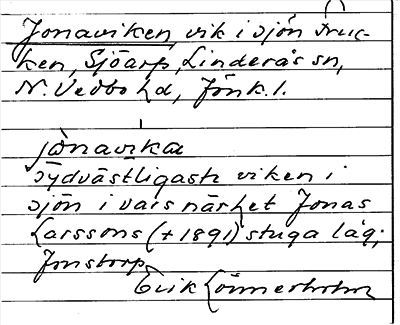 Jonaviken, vik i sjön Fruc-
ken, Sjöarp, Linderås sn,
N. Vedbo hd, Jönk. l.
jònavika
sydvästligaste viken i
sjön i vars närhet Jonas
Larssons († 1891) stuga låg;
Jonstorp
Erik Lönnerholm